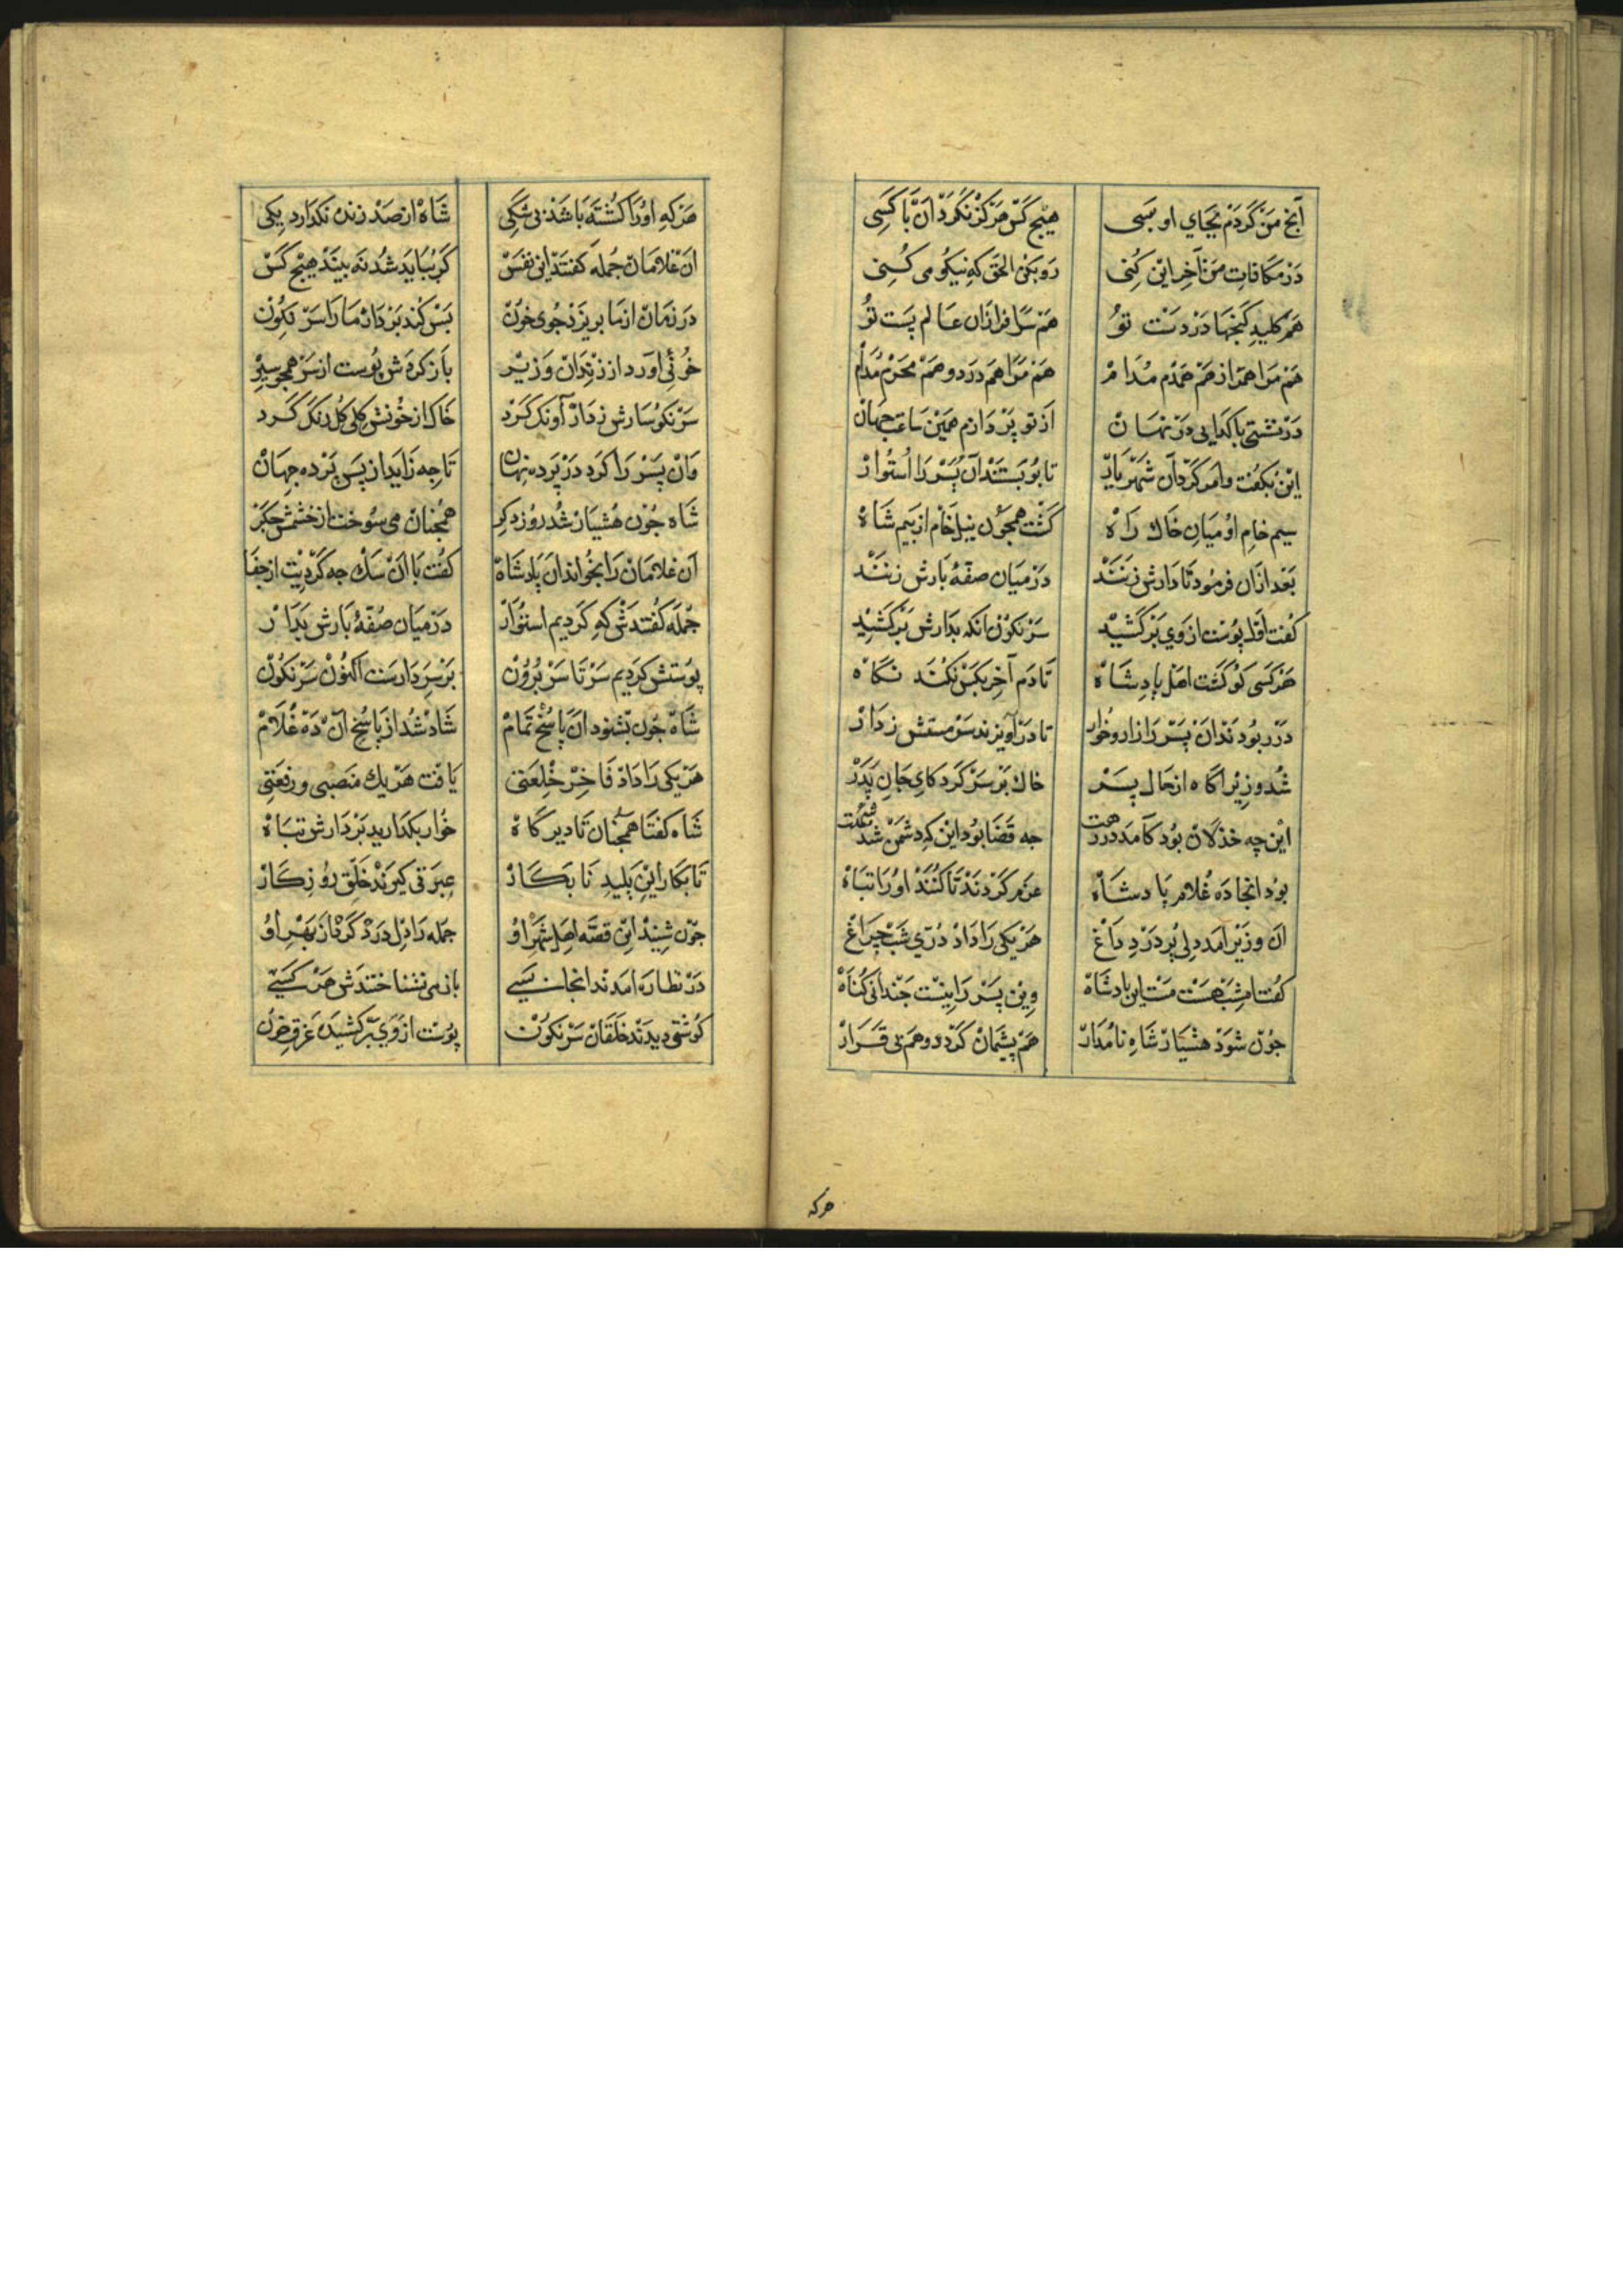 آنچ من کردم بجای او بسی هیچ کس هرگز نکرد آن با کسی
در مکافات من آخر این کنی رو بکن الحق که نیکو می کنی
هم کلید گنجها در دست تو هم سرافرازان عالم پست تو
هم مرا همراز هم همدم مدام هم مرا هم درد و هم محرم مدام
در نشستی با گدایی در نهان از تو پردازم همین ساعت جهان
این بگفت و امر کرد آن شهریار تا ببستند آن پسر را استوار
سیم خام او میان خاک راه گشت همچون نیل خام از بیم شاه
بعد ازان فرمود تا دارش زنند در میان صفهٔ بارش زنند
گفت اول پوست از وی برکشید سرنگون آنگه بدارش برکشید
هر کسی کو گشت اهل پادشاه تا دم آخر بکس نکند نگاه
در ربودند آن پسر را زار و خوار تا درآویزند سرمستش ز دار
شد وزیر آگاه از حال پسر خاک بر سر کرد کای جان پدر
این چه خذلان بود کامد در رهت چه قضا بود این که دشمن شد شهت
بود آنجا ده غلام پادشاه عزم کردند تا کنند او را تباه
آن وزیر آمد دلی پر درد و داغ هر یکی را داد دری شب چراغ
گفت امشب هست مست این پادشاه وین پسر را نیست چندانی گناه
چون شود هشیار شاه نامدار هم پشیمان گردد و هم بی قرار
هرکه
هرکه او را کشته باشد بی شکی شاه از صد زنده نگذارد یکی
آن غلامان جمله گفتند این نفس گر بباید شد نه بیند هیچ کس
در زمان از ما بریزد جوی خون پس کند بر دار ما را سرنگون
خونئی آورد از زندان وزیر باز کردش پوست از سر همچو سیر
سرنگوسارش ز دار آونک کرد خاک از خونش گلی گلرنگ کرد
وان پسر را کرد در پرده نهان تا چه زاید از پس پرده جهان
شاه چون هشیار شد روز دگر همچنان می سوخت از خشمش جگر
آن غلامان را بخواند آن پادشاه گفت با آن سگ چه کردیت از جفا
جمله گفتندش که کردیم استوار در میان صفهٔ بارش بدار
پوستش کردیم سر تا سر برون بر سر دارست اکنون سرنگون
شاه چون بشنود آن پاسخ تمام شاد شد از پاسخ آن ده غلام
هر یکی را داد فاخر خلعتی یافت هر یک منصبی و رفعتی
شاه گفتا همچنان تا دیرگاه خوار بگذارید بر دارش تباه
تا بکار این پلید نابکار عبرتی گیرند خلق روزگار
چون شنید این قصه اهل شهر او جمله را دل درد کرد از بهر او
در نظاره آمدند آنجا بسی بازمی نشناختندش هر کسی
گوشتی دیدند خلقان سرنگون پوست از وی برکشیده غرق خون